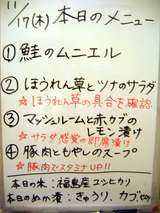 11/17(木)本日のメニュー
①鮭のムニエル
②ほうれん草とツナのサラダ
★ほうれん草の具合を確認
③マッシュルームと赤カブの
レモン漬け
★サラダ感覚の即席漬け
④豚肉ともやしのスープ
★豚肉でスタミナUP!!
本日の米:福島産コシヒカリ
本日のぬか漬:きゅうり、カブ